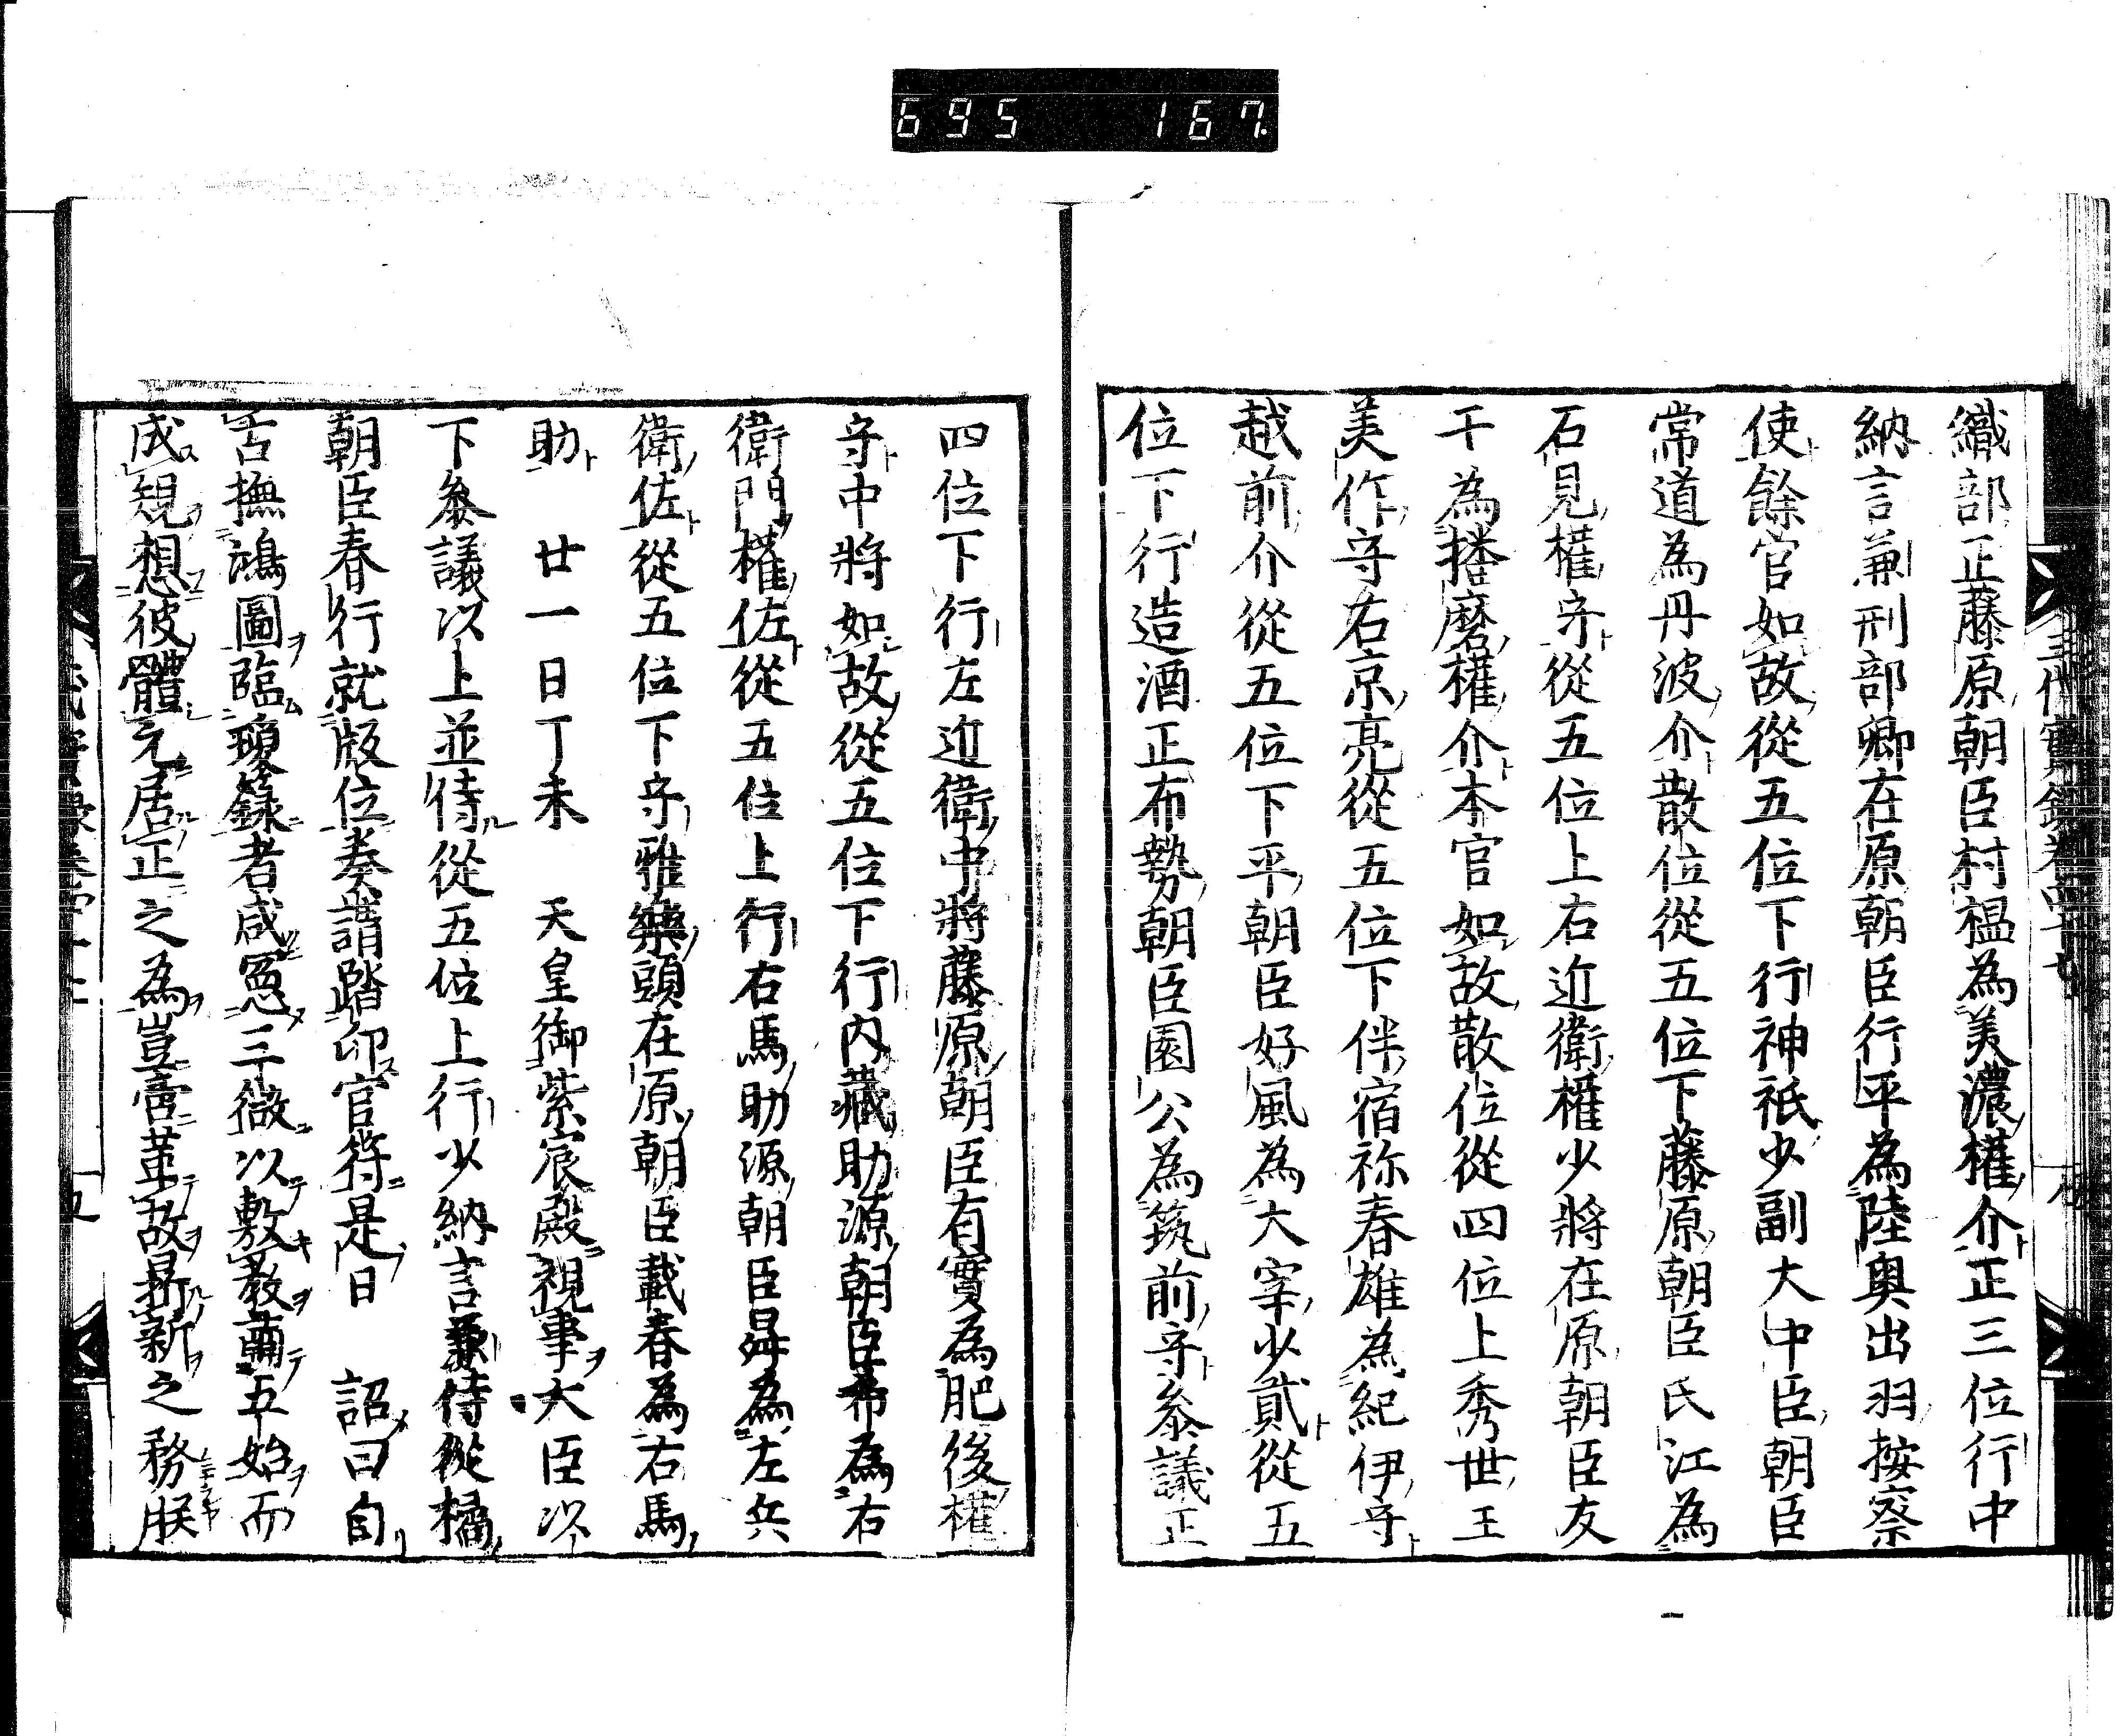 695 167
織部正藤原朝臣村楹為美濃權介正三位行中
納言兼刑部卿在原朝臣行平為陸奥出羽按察
使餘官如故從五位下行神祇少副大中臣朝臣
常道為丹波介散位從五位下藤原朝臣氏江為
石見權守從五位上右近衛權少將在原朝臣友
干為播磨權介本官如故散位從四位上秀世王
美作守右京亮從五位下伴宿祢春雄為紀伊守
越前介從五位下平朝臣好風為大宰少貳從五
位下行造酒正布勢朝臣園公為筑前守參議正
四位下行左近衛中將藤原朝臣有實為肥後權
守中將如故從五位下行内藏助源朝臣希為右
衛門權佐從五位上行右馬助源朝臣舜為左兵
衛佐從五位下守雅樂頭在原朝臣載春為右馬
助 廿一日丁未 天皇御紫宸殿視事大臣以
下參議以上並侍從五位上行少納言兼侍從橘
朝臣春行就版位奏請踏印官符是日 詔曰自
古撫鴻圖臨瓊籙者咸冕三微以敷教軸五始而
成規想彼體元居正之為豈啻革故鼎新之務朕